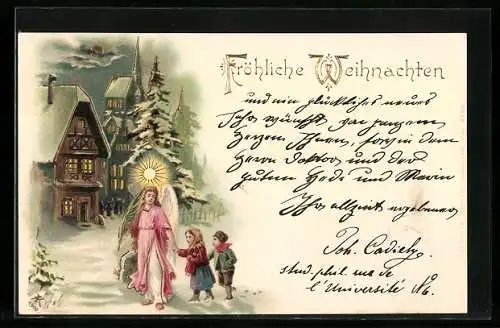 Fröhliche Weihnachten
und ein glückliches neues
Jahr wünscht von ganzem
Herzen Ihnen, sowie dem
Herrn Doktor und der
guten Hede und Marie
Ihr allzeit ergebener
Joh.
stud. phil. de
l'Université